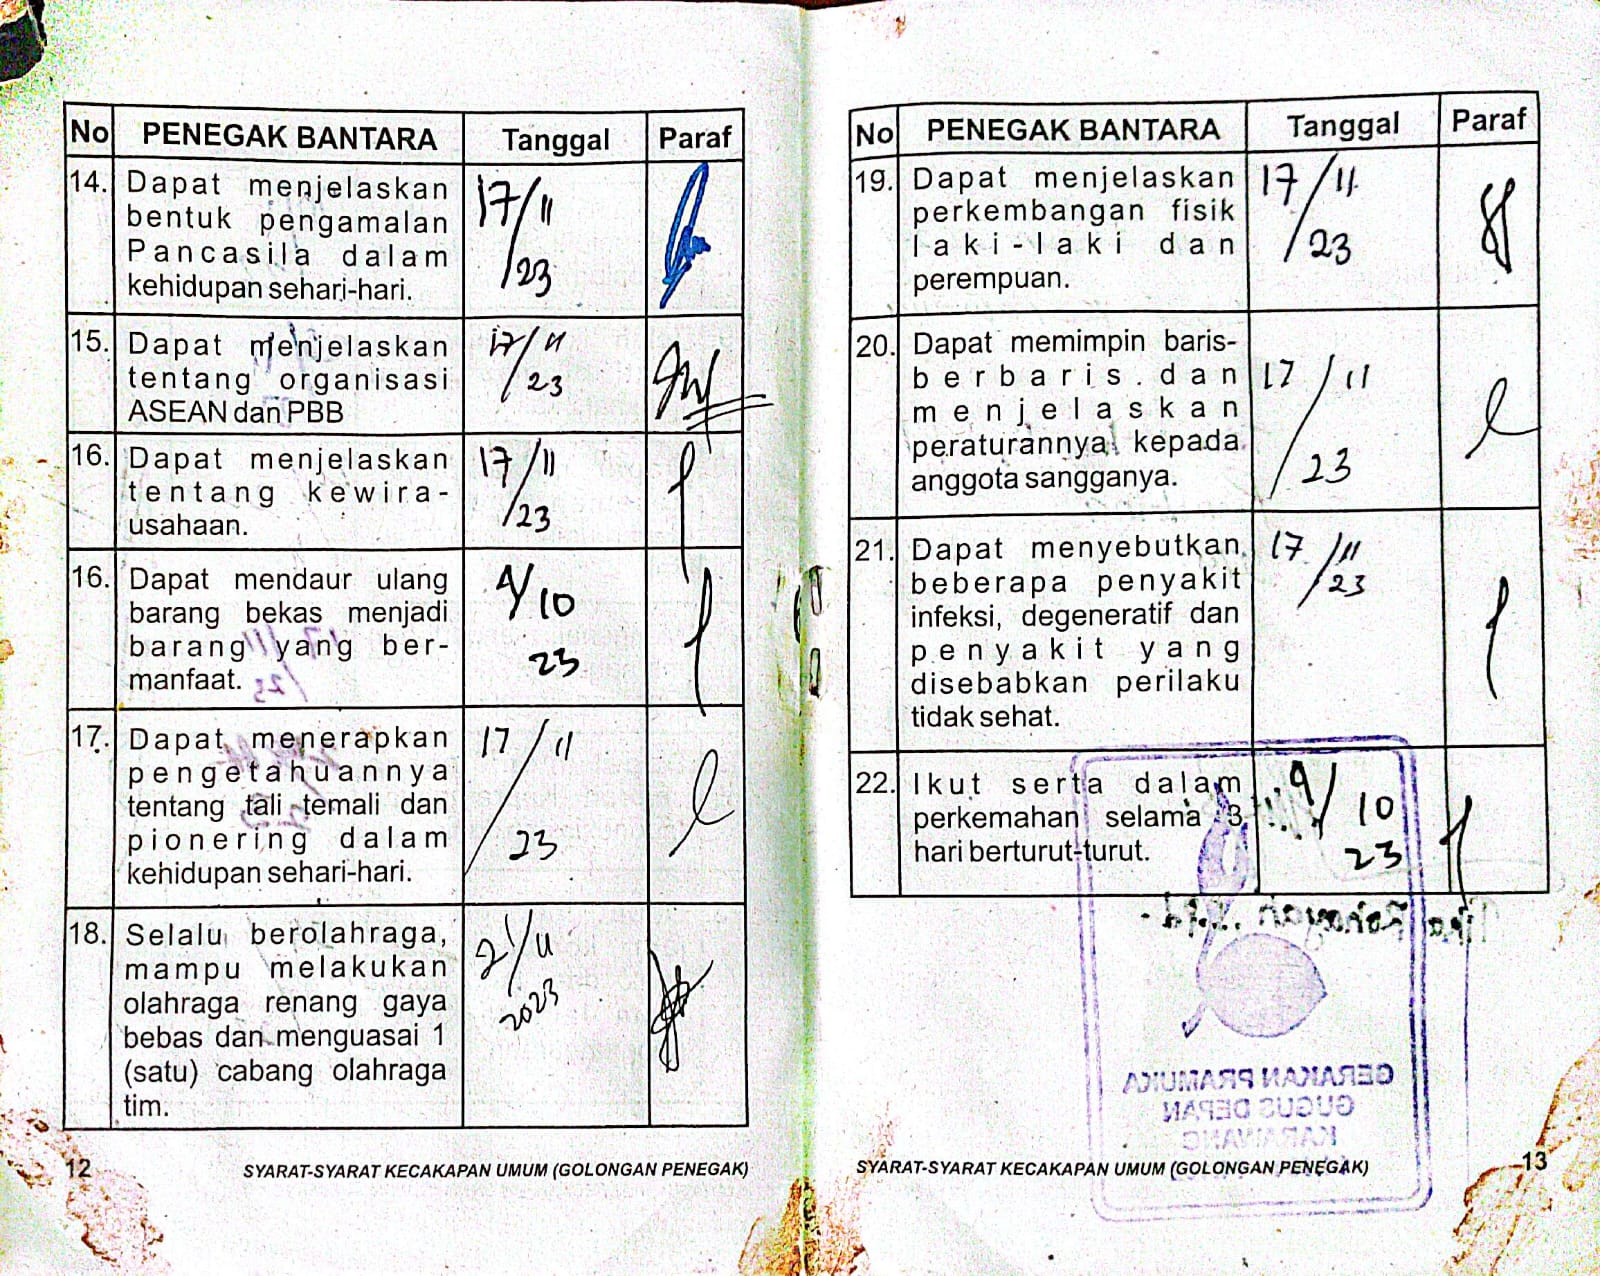 No PENEGAK BANTARA Tanggal Paraf
14. Dapat menjelaskan 17/11
bentuk pengamalan
Pancasila dalam /23
kehidupan sehari-hari.
15. Dapat menjelaskan 17/11
tentang organisasi /23
ASEAN dan PBB
16. Dapat menjelaskan 17/11
tentang kewira-
usahaan. /23
16. Dapat mendaur ulang
barang bekas menjadi /10
barang yang ber- 23
manfaat.
17. Dapat menerapkan 17/11
pengetahuannya
tentang tali temali dan
pionering dalam /23
kehidupan sehari-hari.
18. Selalu berolahraga, 21/11
mampu melakukan 2023
olahraga renang gaya
bebas dan menguasai 1
(satu) cabang olahraga
tim.
12 SYARAT-SYARAT KECAKAPAN UMUM (GOLONGAN PENEGAK)
No PENEGAK BANTARA Tanggal Paraf
19. Dapat menjelaskan 17/11
perkembangan fisik
laki-laki dan /23
perempuan.
20. Dapat memimpin baris-
berbaris dan 17/11
menjelaskan
peraturannya kepada
anggota sangganya. /23
21. Dapat menyebutkan 17/11
beberapa penyakit /23
infeksi, degeneratif dan
penyakit yang
disebabkan perilaku
tidak sehat.
22. Ikut serta dalam 9/
perkemahan selama 3 10
hari berturut-turut. 23
GERAKAN PRAMUKA
GUGUS DEPAN
KARAWANG
SYARAT-SYARAT KECAKAPAN UMUM (GOLONGAN PENEGAK) 13